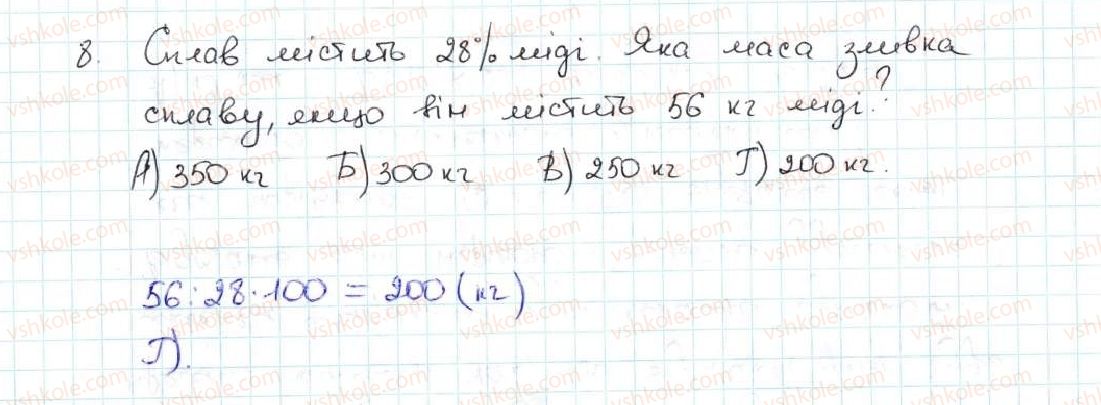 8. Сплав містить 28% міді. Яка маса зливка
сплаву, якщо він містить 56 кг міді?
А) 350 кг Б) 300 кг В) 250 кг Г) 200 кг.
56:28·100 = 200 (кг)
Г).